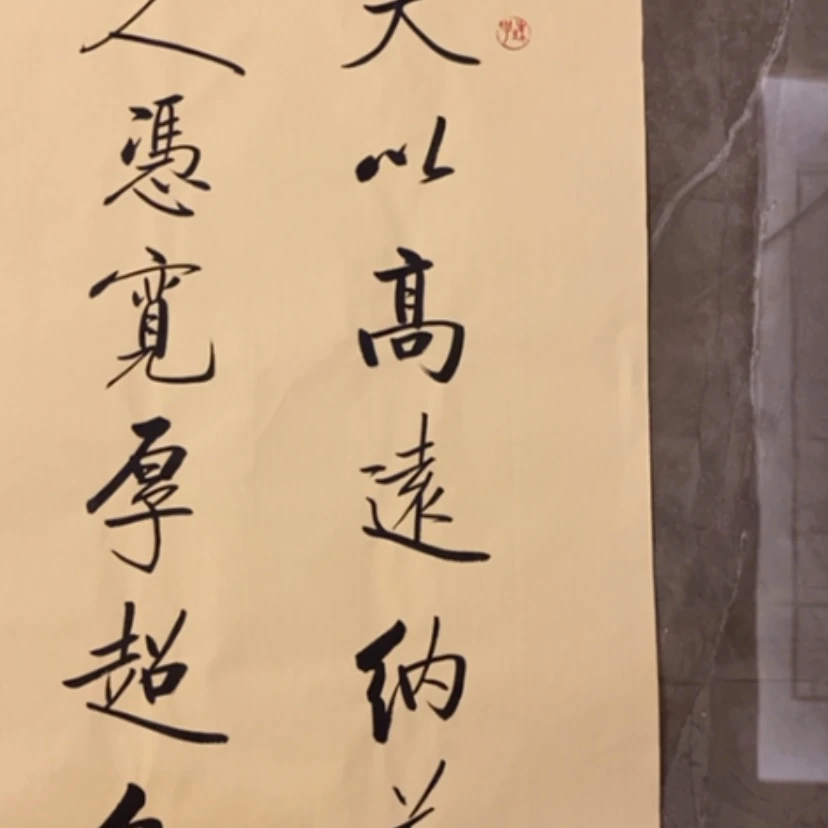 天以高遠納
人憑寬厚超